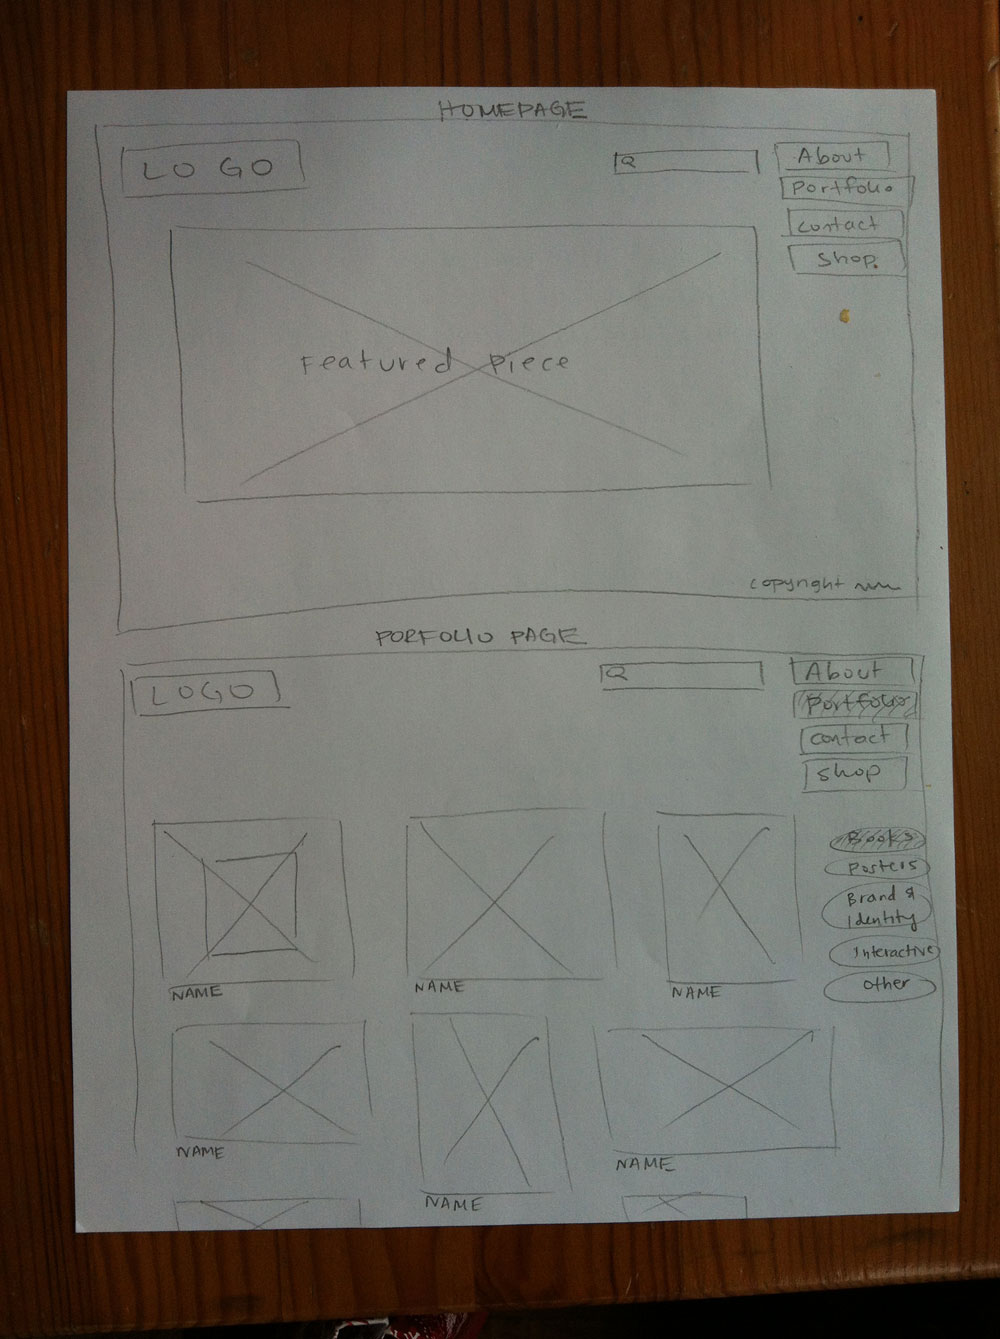 HOMEPAGE
LOGO
About
Portfolio
Contact
Shop.
Featured Piece
copyright
PORFOLIO PAGE
LOGO
About
Portfolio
Contact
Shop
Books
Posters
Brand &
Identity
Interactive
Other
NAME
NAME
NAME
NAME
NAME
NAME